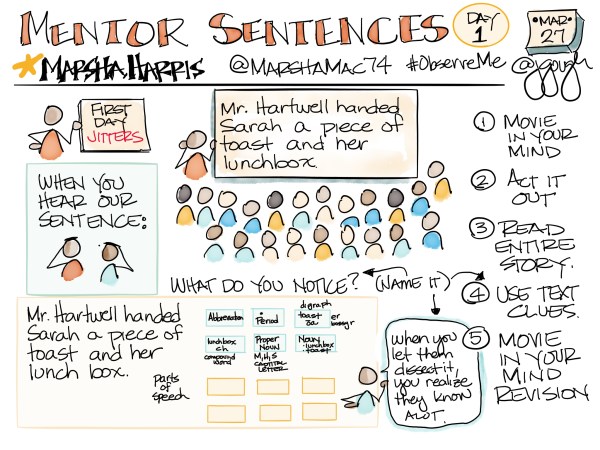 MENTOR SENTENCES
DAY
1
MAR.
27
MARSHA HARRIS
@MARSHAMAC74 #OBSERVEME
FIRST
DAY
JITTERS
Mr. Hartwell handed
Sarah a piece of
toast and her
lunchbox.
WHEN YOU
HEAR OUR
SENTENCE:
① MOVIE
IN YOUR
MIND
② ACT IT
OUT
③ READ
ENTIRE
STORY.
④ USE TEXT
CLUES.
⑤ MOVIE
IN YOUR
MIND
REVISION
WHAT DO YOU NOTICE? (NAME IT)
Mr. Hartwell handed
Sarah a piece of
toast and her
lunch box.
Abbreviation
Period
digraph
toast
oa
er
lunchbox
ch
compound
word
Proper
NOUN
M, H, S
CAPITAL
LETTER
Noun
lunchbox
toast
Parts
of
speech
when you
let them
dissect it,
you realize
they know
ALOT.